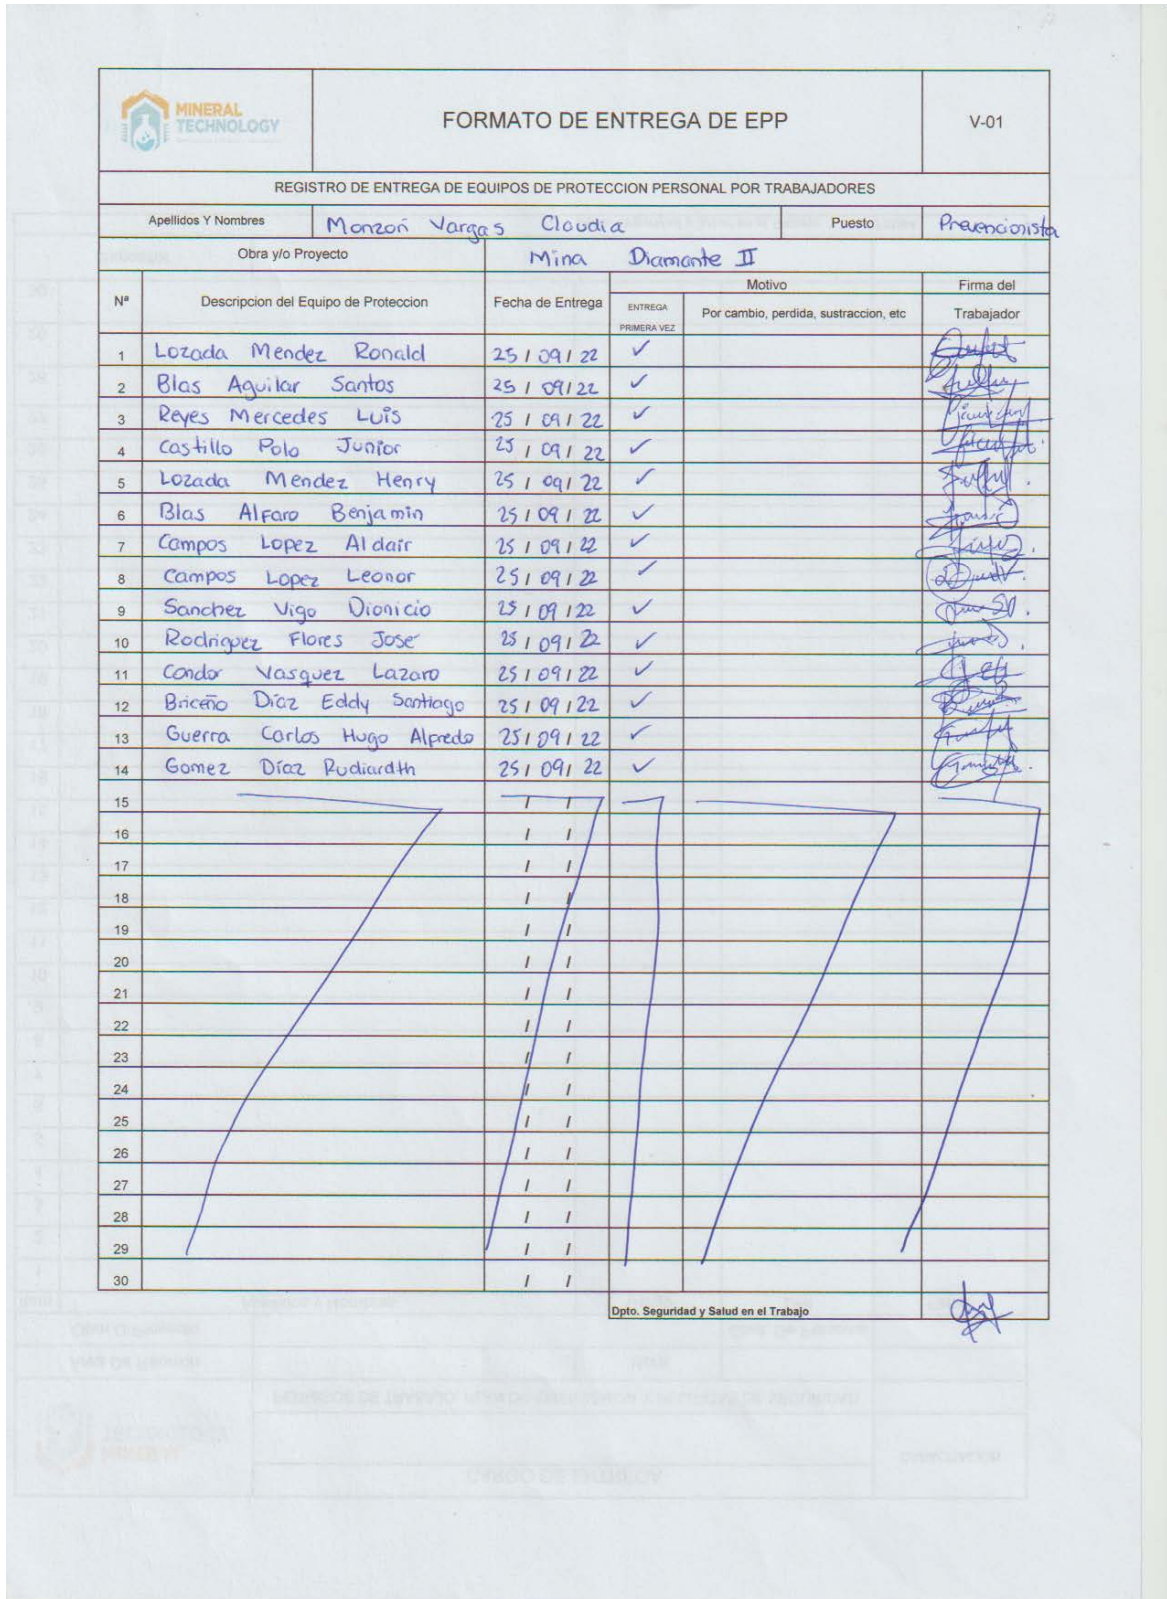 MINERAL
TECHNOLOGY
FORMATO DE ENTREGA DE EPP
V-01
REGISTRO DE ENTREGA DE EQUIPOS DE PROTECCION PERSONAL POR TRABAJADORES
Apellidos Y Nombres Monzón Vargas Claudia Puesto Prevencionista
Obra y/o Proyecto Mina Diamante II
Nª Descripcion del Equipo de Proteccion Fecha de Entrega Motivo Firma del Trabajador
ENTREGA PRIMERA VEZ Por cambio, perdida, sustraccion, etc
1 Lozada Mendez Ronald 25/09/22 ✓
2 Blas Aguilar Santos 25/09/22 ✓
3 Reyes Mercedes Luis 25/09/22 ✓
4 Castillo Polo Junior 25/09/22 ✓
5 Lozada Mendez Henry 25/09/22 ✓
6 Blas Alfaro Benjamin 25/09/22 ✓
7 Campos Lopez Aldair 25/09/22 ✓
8 Campos Lopez Leonor 25/09/22 ✓
9 Sanchez Vigo Dionicio 25/09/22 ✓
10 Rodriguez Flores José 25/09/22 ✓
11 Condor Vasquez Lazaro 25/09/22 ✓
12 Briceño Díaz Eddy Santiago 25/09/22 ✓
13 Guerra Carlos Hugo Alfredo 25/09/22 ✓
14 Gomez Díaz Rudiardth 25/09/22 ✓
15 / /
16 / /
17 / /
18 / /
19 / /
20 / /
21 / /
22 / /
23 / /
24 / /
25 / /
26 / /
27 / /
28 / /
29 / /
30 / /
Dpto. Seguridad y Salud en el Trabajo